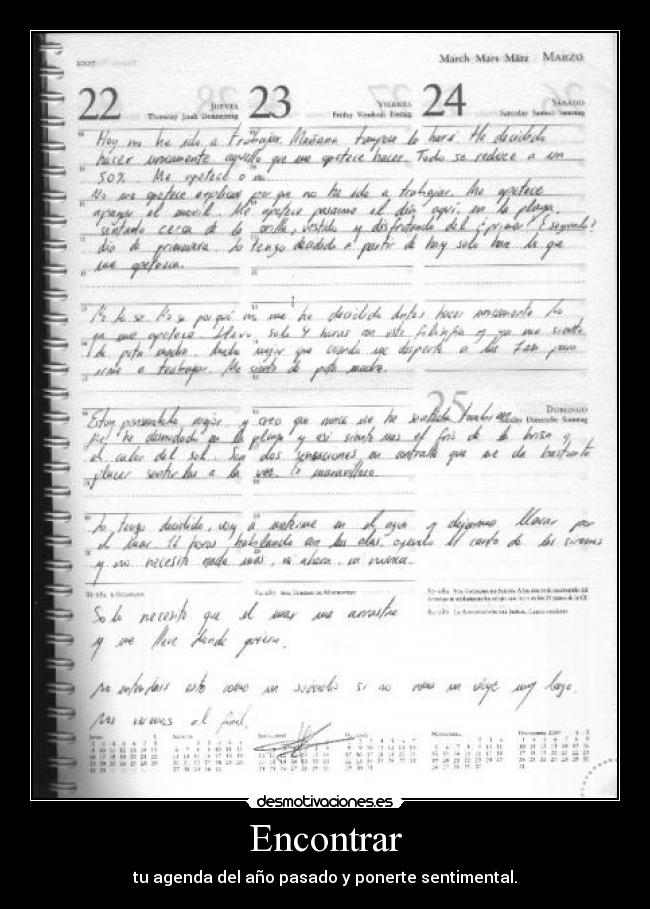 2007
March Mars März MARZO
22 JUEVES
Thursday Jeudi Donnerstag
23 VIERNES
Friday Vendredi Freitag
24 SÁBADO
Saturday Samedi Samstag
Hoy no he ido a trabajar. Mañana tampoco lo haré. He decidido
hacer unicamente aquello que me apetece hacer. Todo se reduce a un
50%. Me apetece o no.
No me apetece explicar por que no he ido a trabajar. Me apetece
apagar el movil. Me apetece pasarme el día aquí, en la playa,
sentado cerca de la orilla, vestido y disfrutando del ¿primer? ¿segundo?
día de primavera. Lo tengo decidido a partir de hoy solo haré lo que
me apetezca.
No lo se. No se porqué no me he decidido antes hacer unicamente lo
que me apetece. Llevo solo 4 horas con esta filosofia y ya me siento
de puta madre. Mucho mejor que cuando me desperté a las 7 am para
irme a trabajar. Me siento de puta madre.
25 DOMINGO
Sunday Dimanche Sonntag
Estoy y creo que nunca me he sentido
Me he desnudado en la playa y así siento mas el frio de la brisa y
el calor del sol. Son dos sensaciones en contraste que me da bastante
placer sentirlas a la vez. Es maravilloso.
Lo tengo decidido, voy a meterme en el agua y dejarme llevar por
el mar. 12 horas hablando con las olas, oyendo el canto de las sirenas
y no necesito nada mas, ni ahora, ni nunca.
Solo necesito que el mar me arrastre
y me lleve donde quiera.
No entendais esto como un suicidio si no como un viaje muy largo.
Nos veremos al final.
desmotivaciones.es
Encontrar
tu agenda del año pasado y ponerte sentimental.